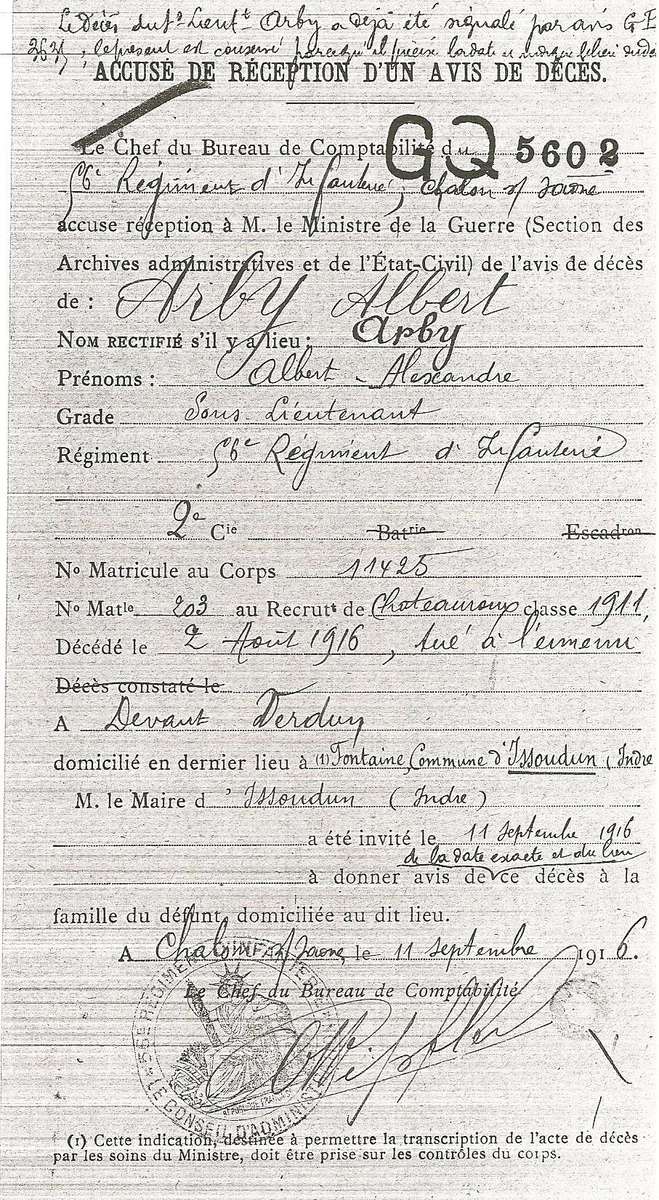 Le Décès du s/s Lieut<sup>t</sup> Arby a déjà été signalé par avis G E
; le présent est conservé parce qu'il précise la date et
ACCUSÉ DE RÉCEPTION D'UN AVIS DE DÉCÈS.
Le Chef du Bureau de Comptabilité du GQ 5602
56e Régiment d'Infanterie, Chalon s/ Saone
accuse réception à M. le Ministre de la Guerre (Section des
Archives administratives et de l'État-Civil) de l'avis de décès
de : Arby Albert
NOM RECTIFIÉ s'il y a lieu : Arby
Prénoms : Albert - Alexandre
Grade Sous-Lieutenant
Régiment 56e Régiment d'Infanterie
2e Cie Batrie Escadron
No Matricule au Corps 11425
No Matle 203 au Recrutt de Chateauroux classe 1911
Décédé le 2 Août 1916, tué à l'ennemi
Décès constaté le
A Devant Verdun
domicilié en dernier lieu à (1) Fontaine, Commune d'Issoudun (Indre
M. le Maire d'Issoudun (Indre)
a été invité le 11 septembre 1916
de la date exacte et du lieu
à donner avis de ce décès à la
famille du défunt, domiciliée au dit lieu.
A Chalon s/ Saone le 11 septembre 1916.
Le Chef du Bureau de Comptabilité
56E RÉGIMENT D'INFANTERIE
LE CONSEIL D'ADMINIST
(1) Cette indication, destinée à permettre la transcription de l'acte de décès
par les soins du Ministre, doit être prise sur les contrôles du corps.